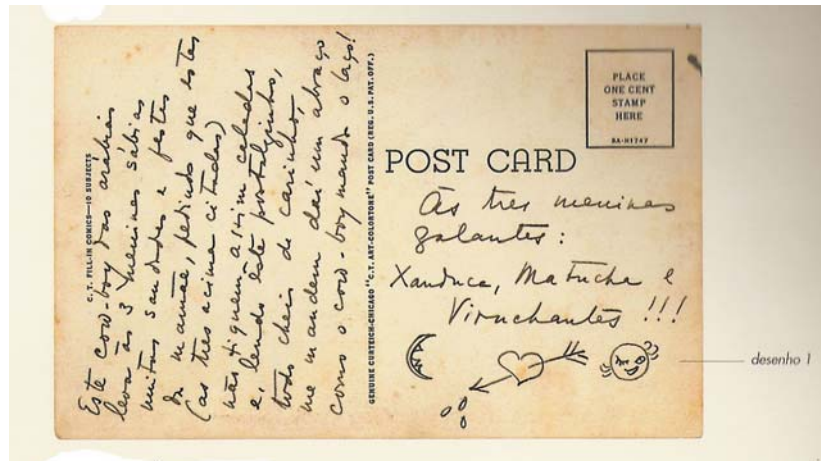 Este cow-boy das arábias
leva às 3 meninas sábias
muitas saudades e festas
da mamãe, pedindo que estas
(as tres acima citadas)
não fiquem assim caladas
e, lendo êste postalzinho,
todo cheio de carinho,
me mandem daí um abraço
como o cow-boy manda o laço!
C. T. FILL-IN COMICS—10 SUBJECTS
GENUINE CURTEICH-CHICAGO "C. T. ART-COLORTONE" POST CARD (REG. U. S. PAT. OFF.)
PLACE
ONE CENT
STAMP
HERE
5A-H1747
POST CARD
Às tres meninas
galantes:
Xanduca, Matucha e
Viruchantes !!!
desenho 1